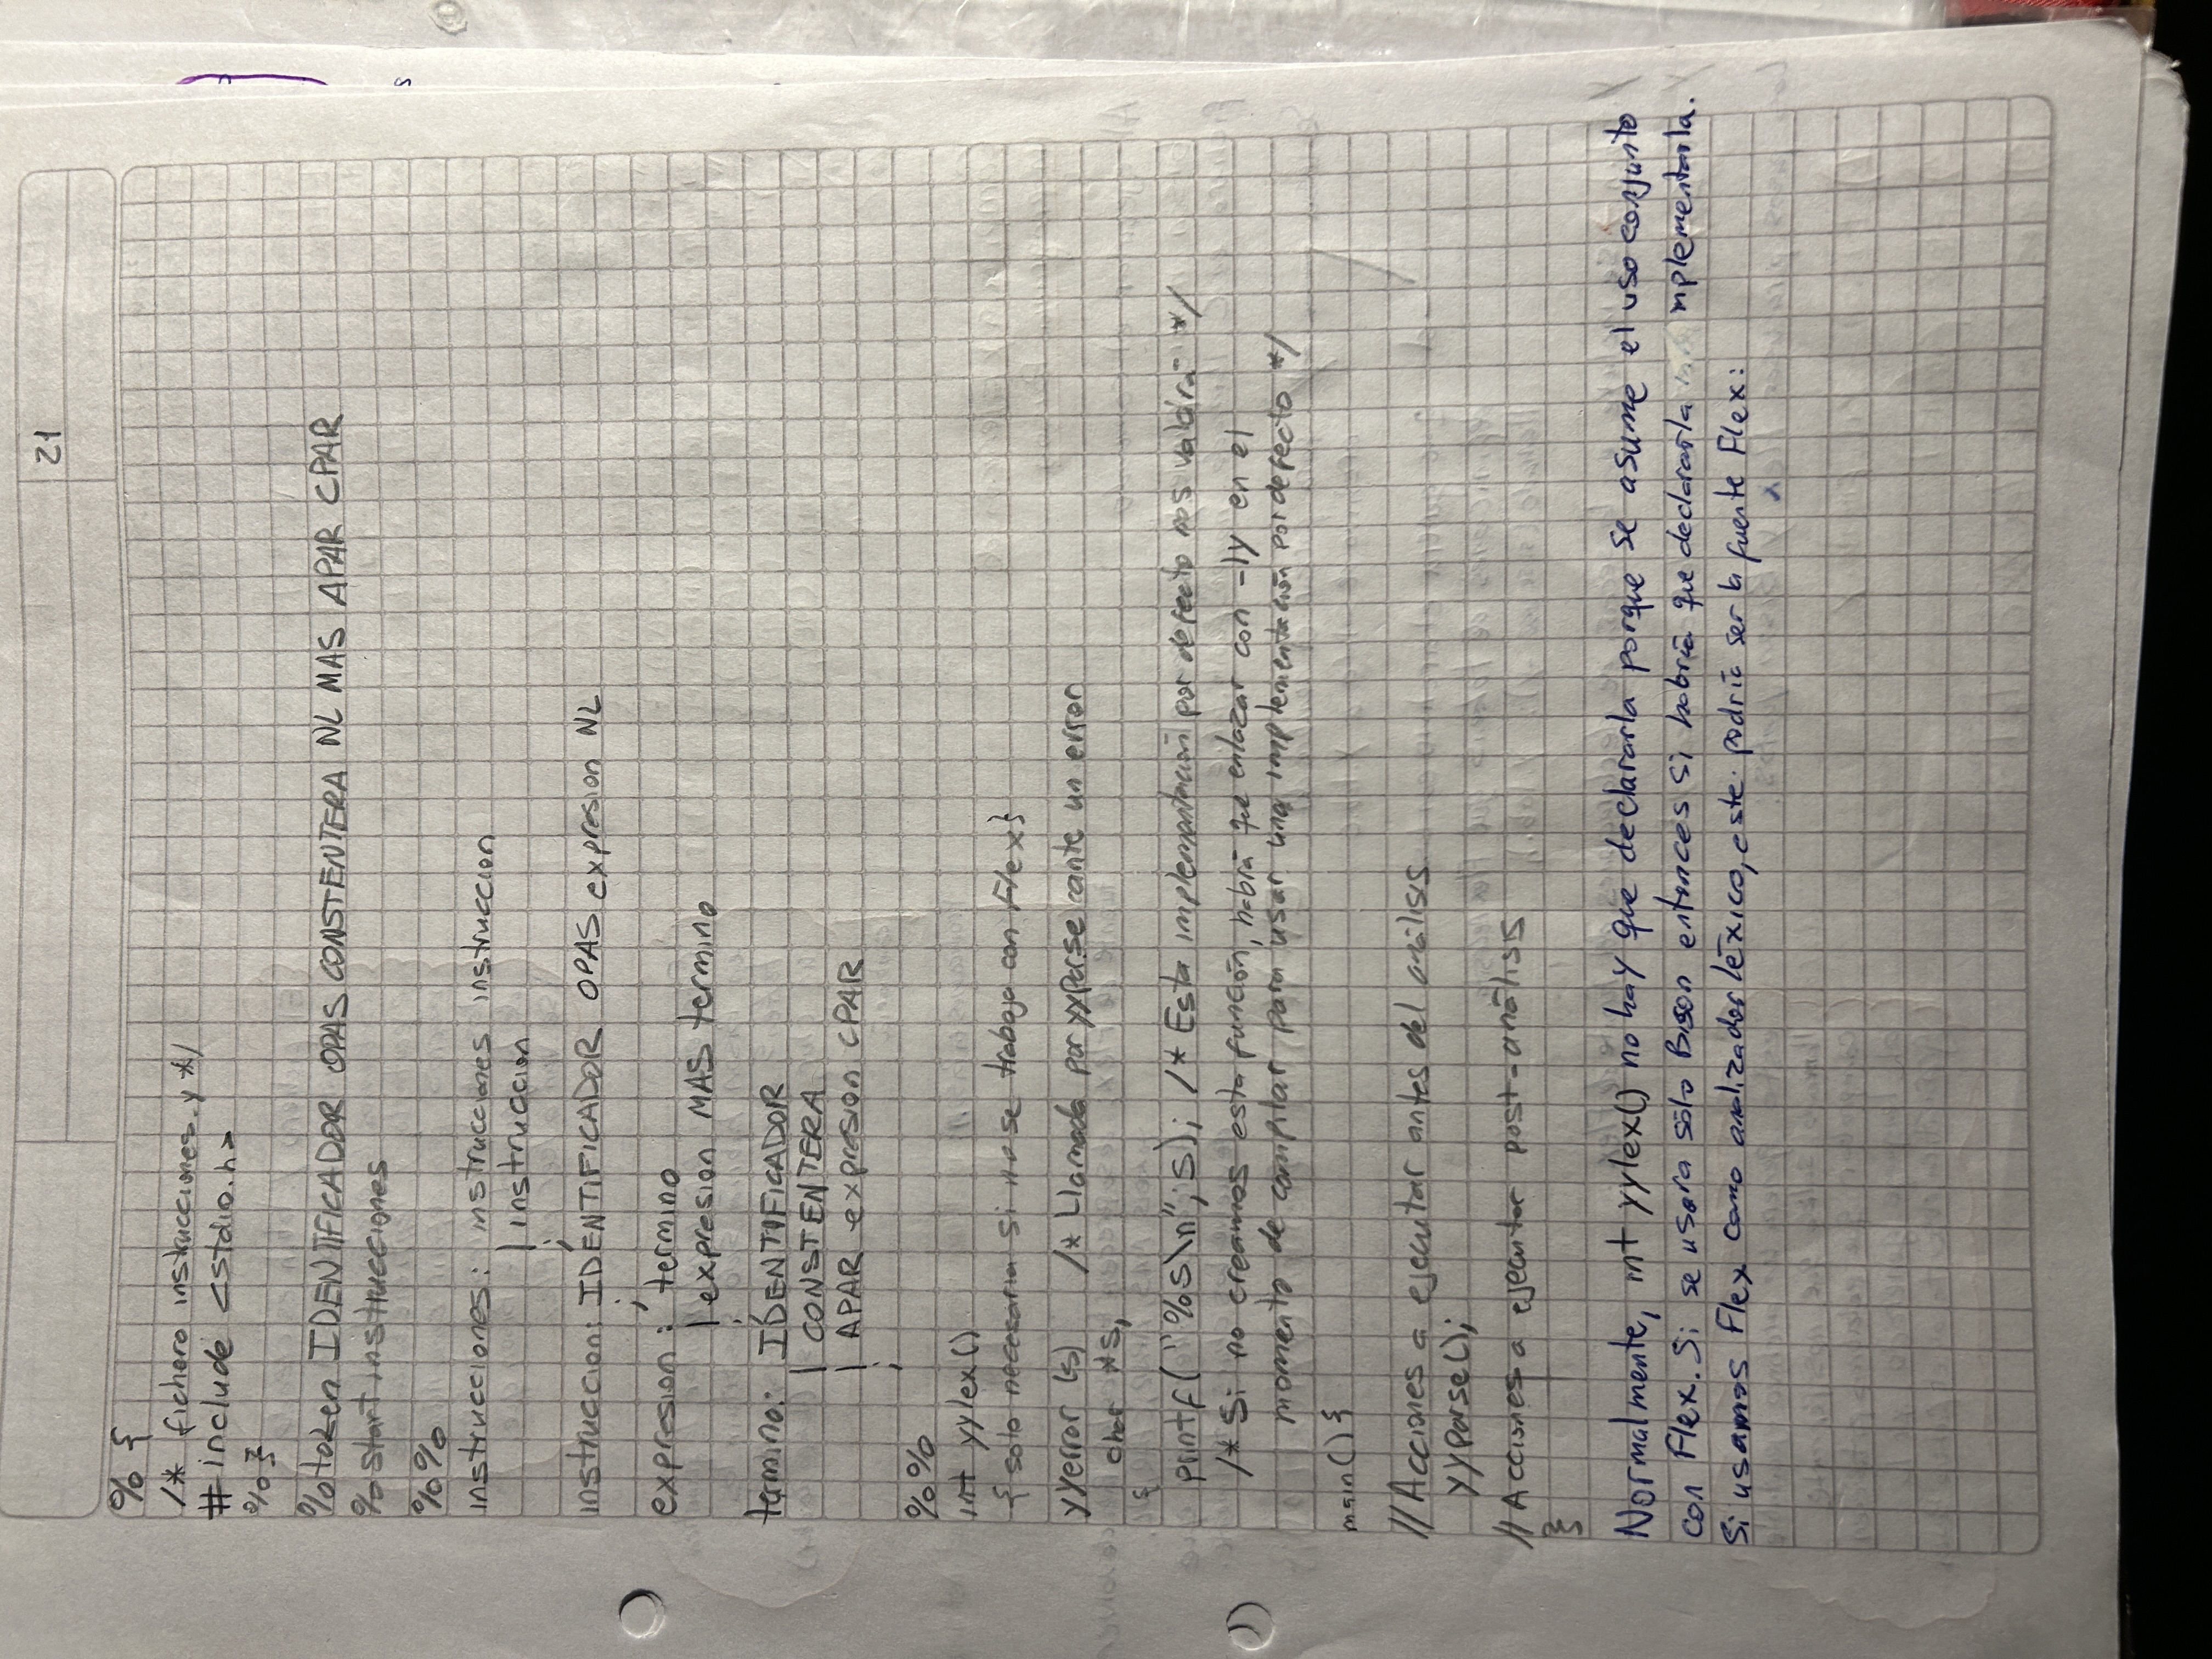 21
% {
/* fichero instrucciones.y */
# include <stdio.h>
% }
%token IDENTIFICADOR OPAS CONSTENTERA NL MAS APAR CPAR
% start instrucciones
%%
instrucciones: instrucciones instruccion
| instruccion
;
instruccion: IDENTIFICADOR OPAS expresion NL
;
expresion: termino
| expresion MAS termino
;
termino: IDENTIFICADOR
| CONSTENTERA
| APAR expresion CPAR
;
%%
int yylex()
{ solo necesaria si no se trabaja con Flex}
yyerror (s) /* Llamada por yyparse ante un error
char *s;
{
printf( "%s\n"; s); /* Esta implementación por defecto nos valdrá */
/* Si no creamos esta función, habrá que enlazar con -ly en el
momento de compilar para usar una implementación por defecto */
main() {
// Acciones a ejecutar antes del análisis
yyparse();
// Acciones a ejecutar post-análisis
}
Normalmente, int yylex() no hay que declararla porque se asume el uso conjunto
con Flex. Si se usara sólo Bison entonces si habría que declararla implementarla.
Si usamos Flex como analizador léxico, este podría ser la fuente Flex: